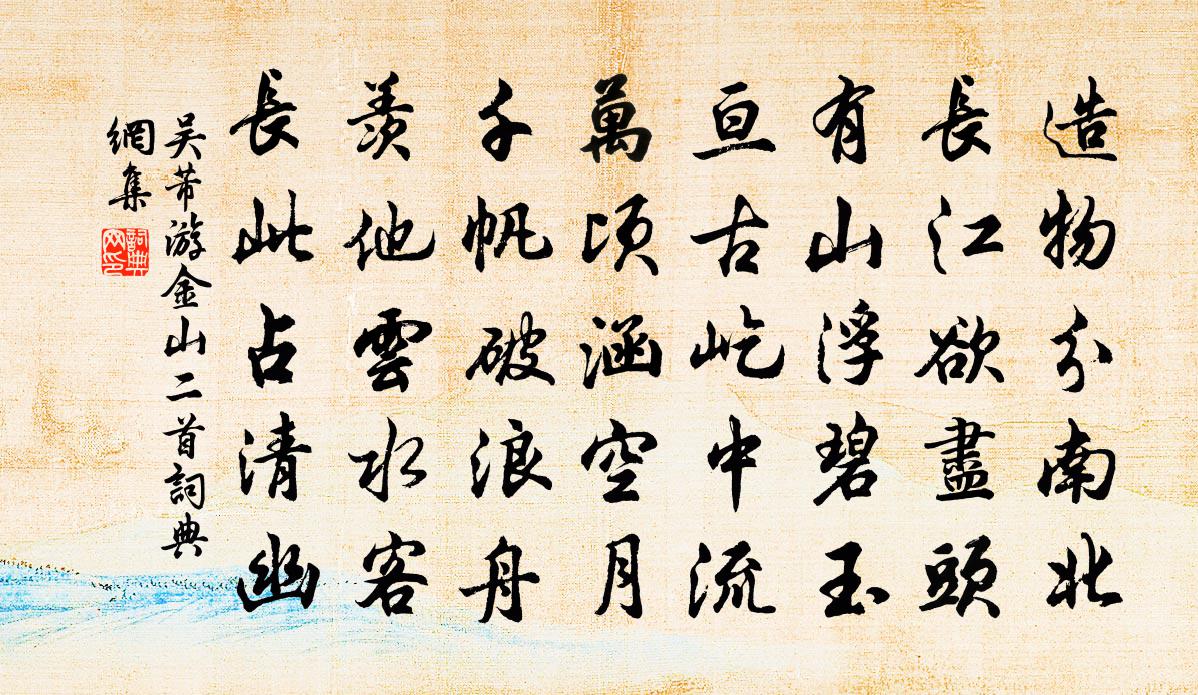 造物分南北
長江欲盡頭
有山浮碧玉
亘古屹中流
萬頃涵空月
千帆破浪舟
羨他雲水客
長此占清幽
吴芾游金山二首詞典
網集
詞典
网印